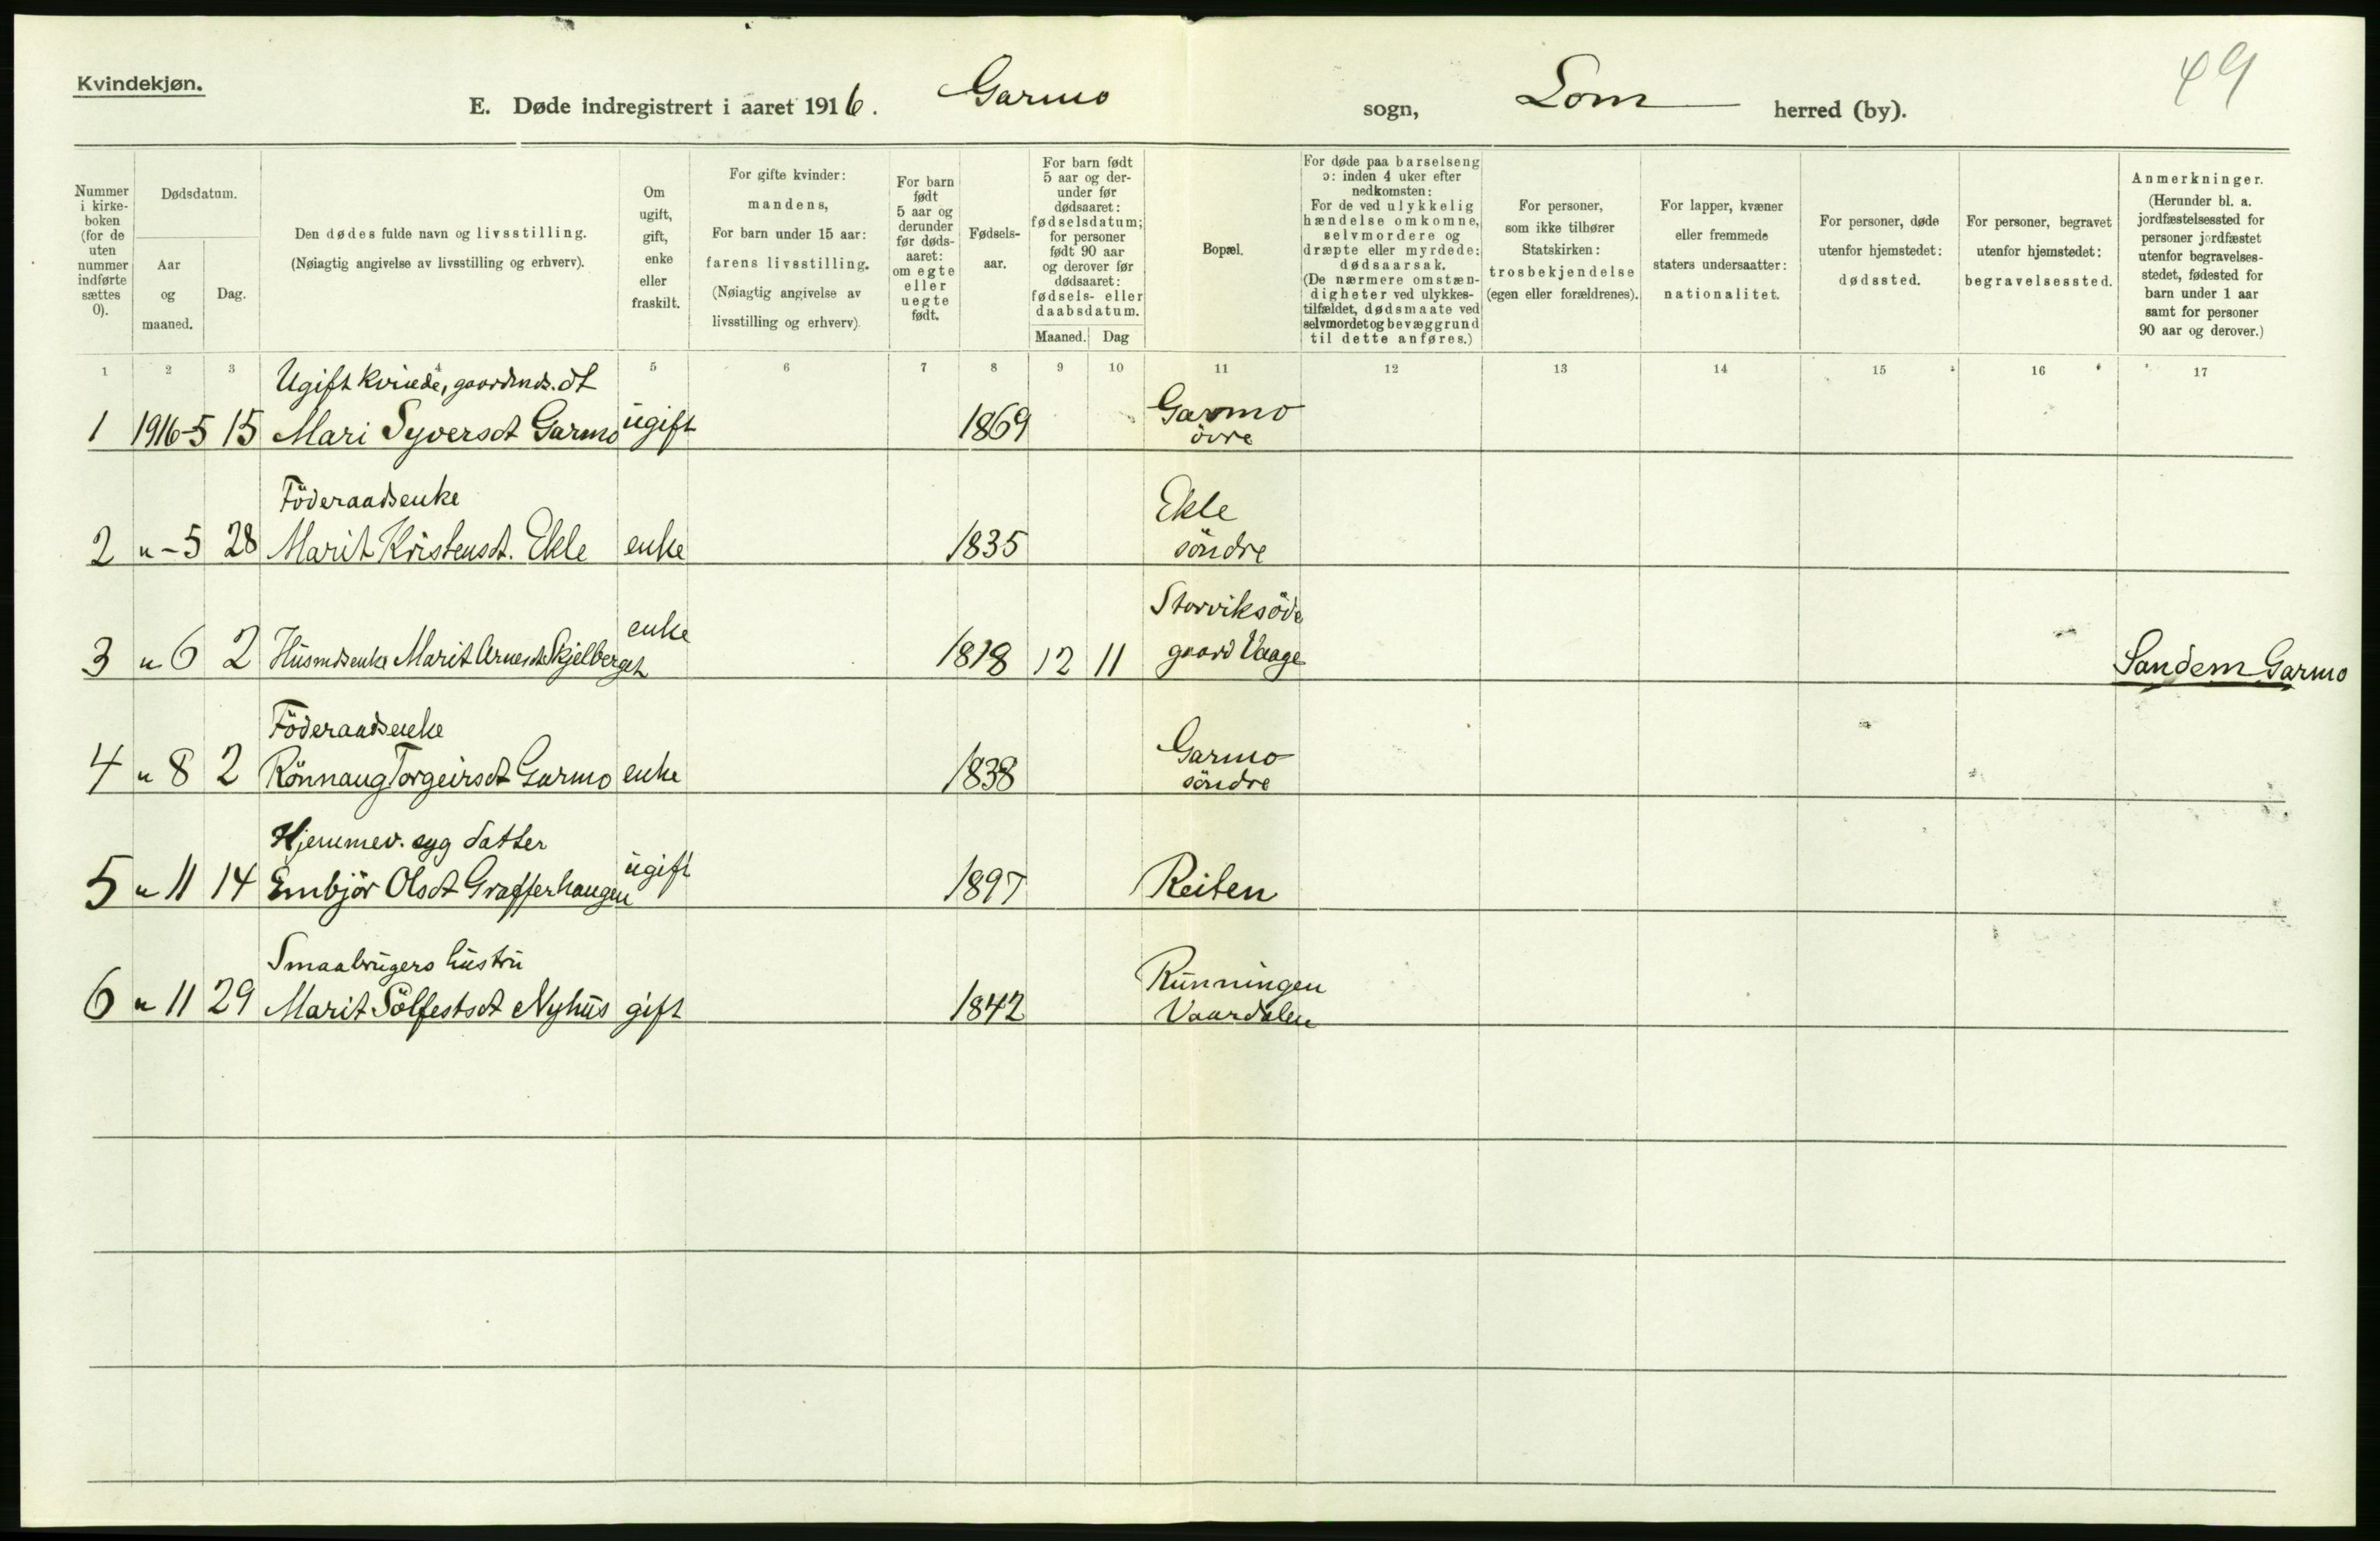 Kvindekjøn.
49
E. Døde indregistrert i aaret 1916. Garmo sogn, Lom herred (by).
Nummer i kirke-boken (for de uten nummer indførte sættes 0).
Dødsdatum.
Aar og maaned.
Dag.
Den dødes fulde navn og livsstilling.
(Nøiagtig angivelse av livsstilling og erhverv).
Om ugift, gift, enke eller fraskilt.
For gifte kvinder: mandens,
For barn under 15 aar: farens livsstilling.
(Nøiagtig angivelse av livsstilling og erhverv)
For barn født 5 aar og derunder før døds-aaret: om egte eller uegte født.
Fødsels-aar.
For barn født 5 aar og der-under før dødsaaret: fødselsdatum; for personer født 90 aar og derover før dødsaaret: fødsels- eller daabsdatum.
Maaned. Dag
Bopæl.
For døde paa barselseng ɔ: inden 4 uker efter nedkomsten:
For de ved ulykkelig hændelse omkomne, selvmordere og dræpte eller myrdede: dødsaarsak.
(De nærmere omstæn-digheter ved ulykkes-tilfældet, dødsmaate ved selvmordet og bevæggrund til dette anføres.)
For personer, som ikke tilhører Statskirken: trosbekjendelse (egen eller forældrenes).
For lapper, kvæner eller fremmede staters undersaatter: nationalitet.
For personer, døde utenfor hjemstedet: dødssted.
For personer, begravet utenfor hjemstedet: begravelsessted.
Anmerkninger.
(Herunder bl. a. jordfæstelsessted for personer jordfæstet utenfor begravelses-stedet, fødested for barn under 1 aar samt for personer 90 aar og derover.)
1 2 3 4 5 6 7 8 9 10 11 12 13 14 15 16 17
Ugift kvinde, gaardmds. dt
1 1916-5 15 Mari Syversdt Garmo ugift 1869 Garmo øvre
Föderaadsenke
2 " - 5 28 Marit Kristensdt. Ekle enke 1835 Ekle söndre
3 " 6 2 Husmdsenke Marit Arnesdt Skjelberget enke 1818 12 11 Storviksöde gaard Vaage Sandem Garmo
Föderaadsenke
4 " 8 2 Rönnaug Torgeirsdt Garmo enke 1838 Garmo söndre
Hjemmev. syg datter
5 " 11 14 Embjör Olsdt Grafferhaugen ugift 1897 Reiten
Smaabrugers hustru
6 " 11 29 Marit Sölfestsdt Nyhus gift 1842 Runningen Vaardalen